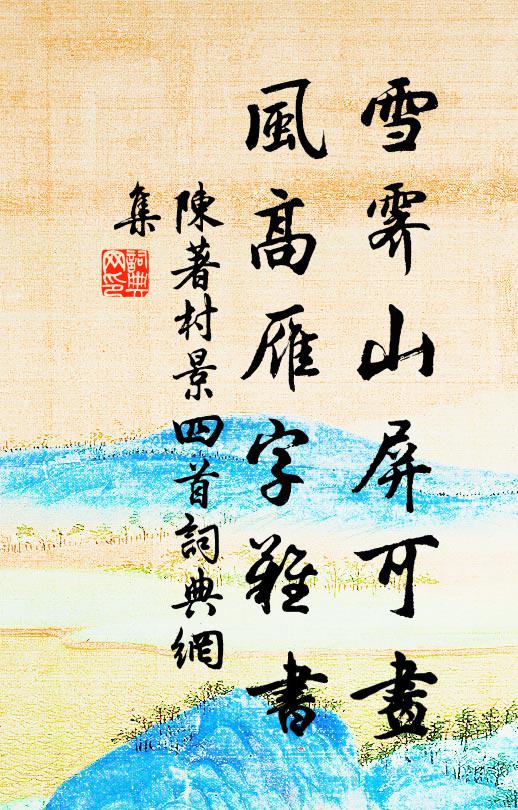 雪霽山屏可畫
風高雁字難書
陳著村景四首詞典網
集
詞典
网印